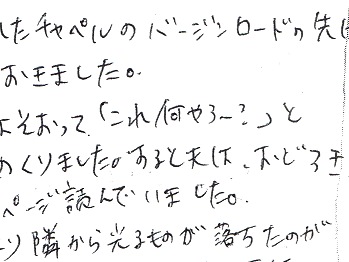 したチャペルのバージンロードの先に
おきました。
よそおって「これ何やろー？」と
めくりました。すると夫は、おどろき
ページ読んでいました。
ーツ隣から光るものが落ちたのが